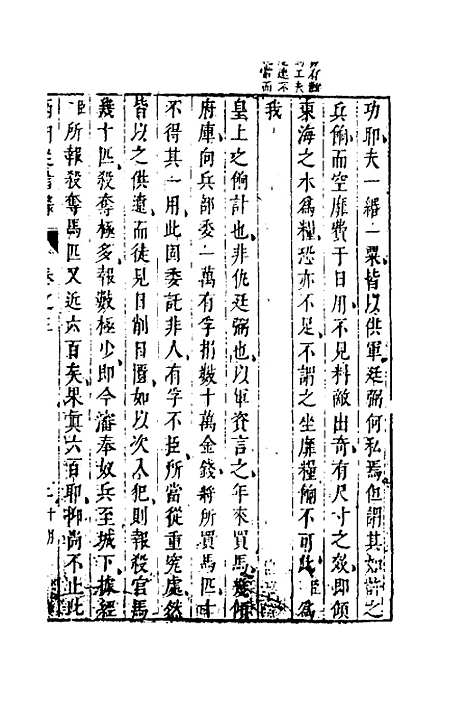 功耶夫一緡一粟皆以供軍廷弼何私焉但謂其如許之
兵餉而空靡費于日用不見料敵出奇有尺寸之效即傾
東海之水為糧恐亦不足不謂之坐靡糧餉不可此臣為
我
皇上之餉計也非仇廷弼也以軍資言之年來買馬幾傾
府庫向兵部委一萬有孚捐數十萬金錢將所買馬匹十
不得其一用此固委託非人有孚不臣所當從重究處然
皆以之供遼而徒見日削日匱如以次入犯則報殺官馬
幾十匹殺奪極多報數極少即今瀋奉奴兵至城下據經
臣所報殺奪馬匹又近六百矣果真六百耶抑尚不止此
卷之三